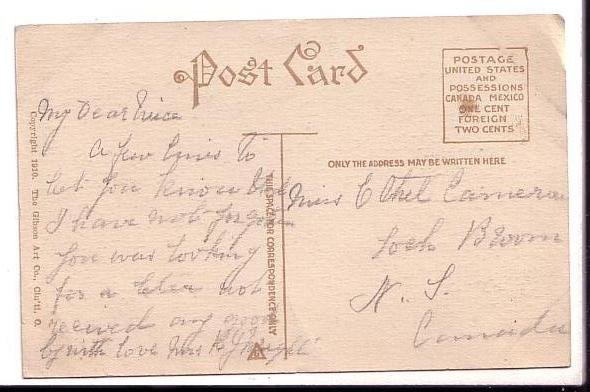 Post Card
POSTAGE
UNITED STATES
AND
POSSESSIONS
CANADA MEXICO
ONE CENT
FOREIGN
TWO CENTS
ONLY THE ADDRESS MAY BE WRITTEN HERE
THIS SPACE FOR CORRESPONDENCE ONLY
Copyright 1910. The Gibson Art Co., Cin'ti, O.
My Dear
A few lines to
let you know that
I have not
you was looking
for a letter not
received any
by with love Mrs
Miss Ethel Cameron
Loch Broom
N. S.
Canada